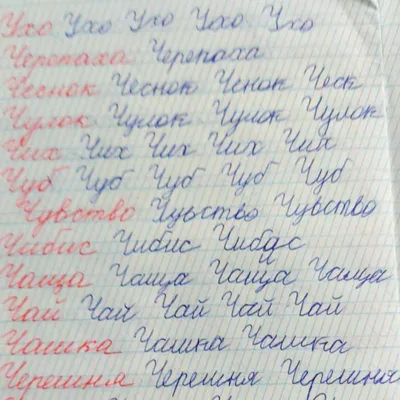 Ухо Ухо Ухо Ухо Ухо
Черепаха Черепаха
Чеснок Чеснок Ченок Ческ
Чулок Чулок Чулок Чулок
Чих Чих Чих Чих Чих
Чуб Чуб Чуб Чуб Чуб
Чувство Чувство Чувство
Чибис Чибис Чибис
Чаща Чаща Чаща Чаща
Чай Чай Чай Чай Чай
Чашка Чашка Чашка
Черешня Черешня Черешня